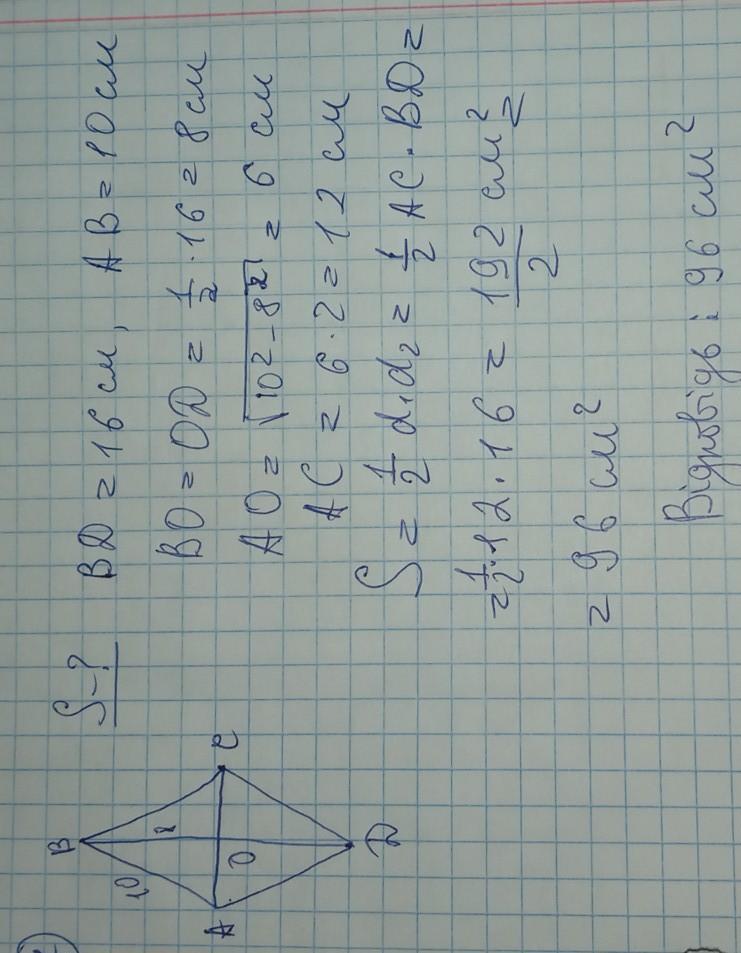 S-?
B
10
8
A
O
C
D
BD = 16 см, AB = 10 см
BO = OD = 1/2 · 16 = 8 см
AO = √10² - 8² = 6 см
AC = 6 · 2 = 12 см
S = 1/2 d₁d₂ = 1/2 AC · BD =
= 1/2 · 12 · 16 = 192/2 см² =
= 96 см²
Відповідь: 96 см²